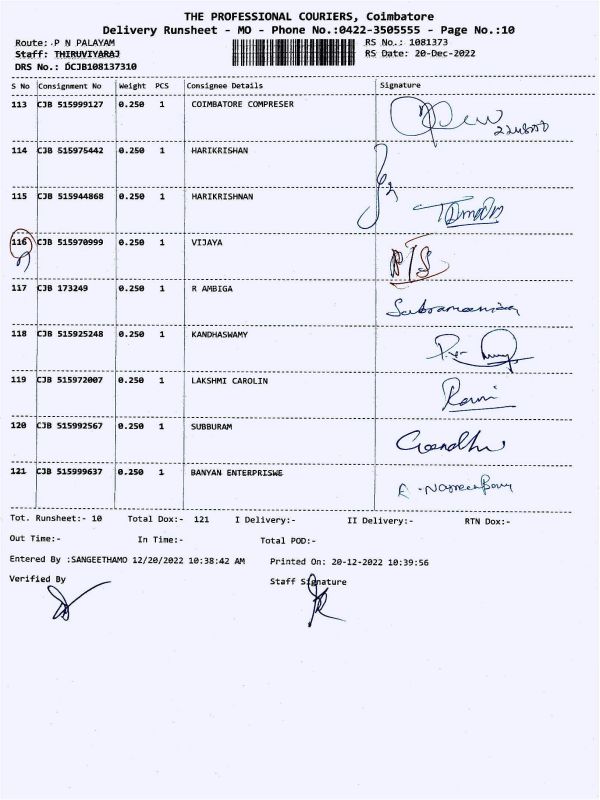 THE PROFESSIONAL COURIERS, Coimbatore
Delivery Runsheet - MO - Phone No.:0422-3505555 - Page No.:10
Route: P N PALAYAM RS No.: 1081373
Staff: THIRUVIYARAJ RS Date: 20-Dec-2022
DRS No.: DCJB108137310
S No Consignment No Weight PCS Consignee Details Signature
113 CJB 515999127 0.250 1 COIMBATORE COMPRESER
114 CJB 515975442 0.250 1 HARIKRISHAN
115 CJB 515944868 0.250 1 HARIKRISHNAN
116 CJB 515970999 0.250 1 VIJAYA
117 CJB 173249 0.250 1 R AMBIGA
118 CJB 515925248 0.250 1 KANDHASWAMY
119 CJB 515972007 0.250 1 LAKSHMI CAROLIN
120 CJB 515992567 0.250 1 SUBBURAM
121 CJB 515999637 0.250 1 BANYAN ENTERPRISWE
Tot. Runsheet:- 10 Total Dox:- 121 I Delivery:- II Delivery:- RTN Dox:-
Out Time:- In Time:- Total POD:-
Entered By :SANGEETHAMO 12/20/2022 10:38:42 AM Printed On: 20-12-2022 10:39:56
Verified By Staff Signature